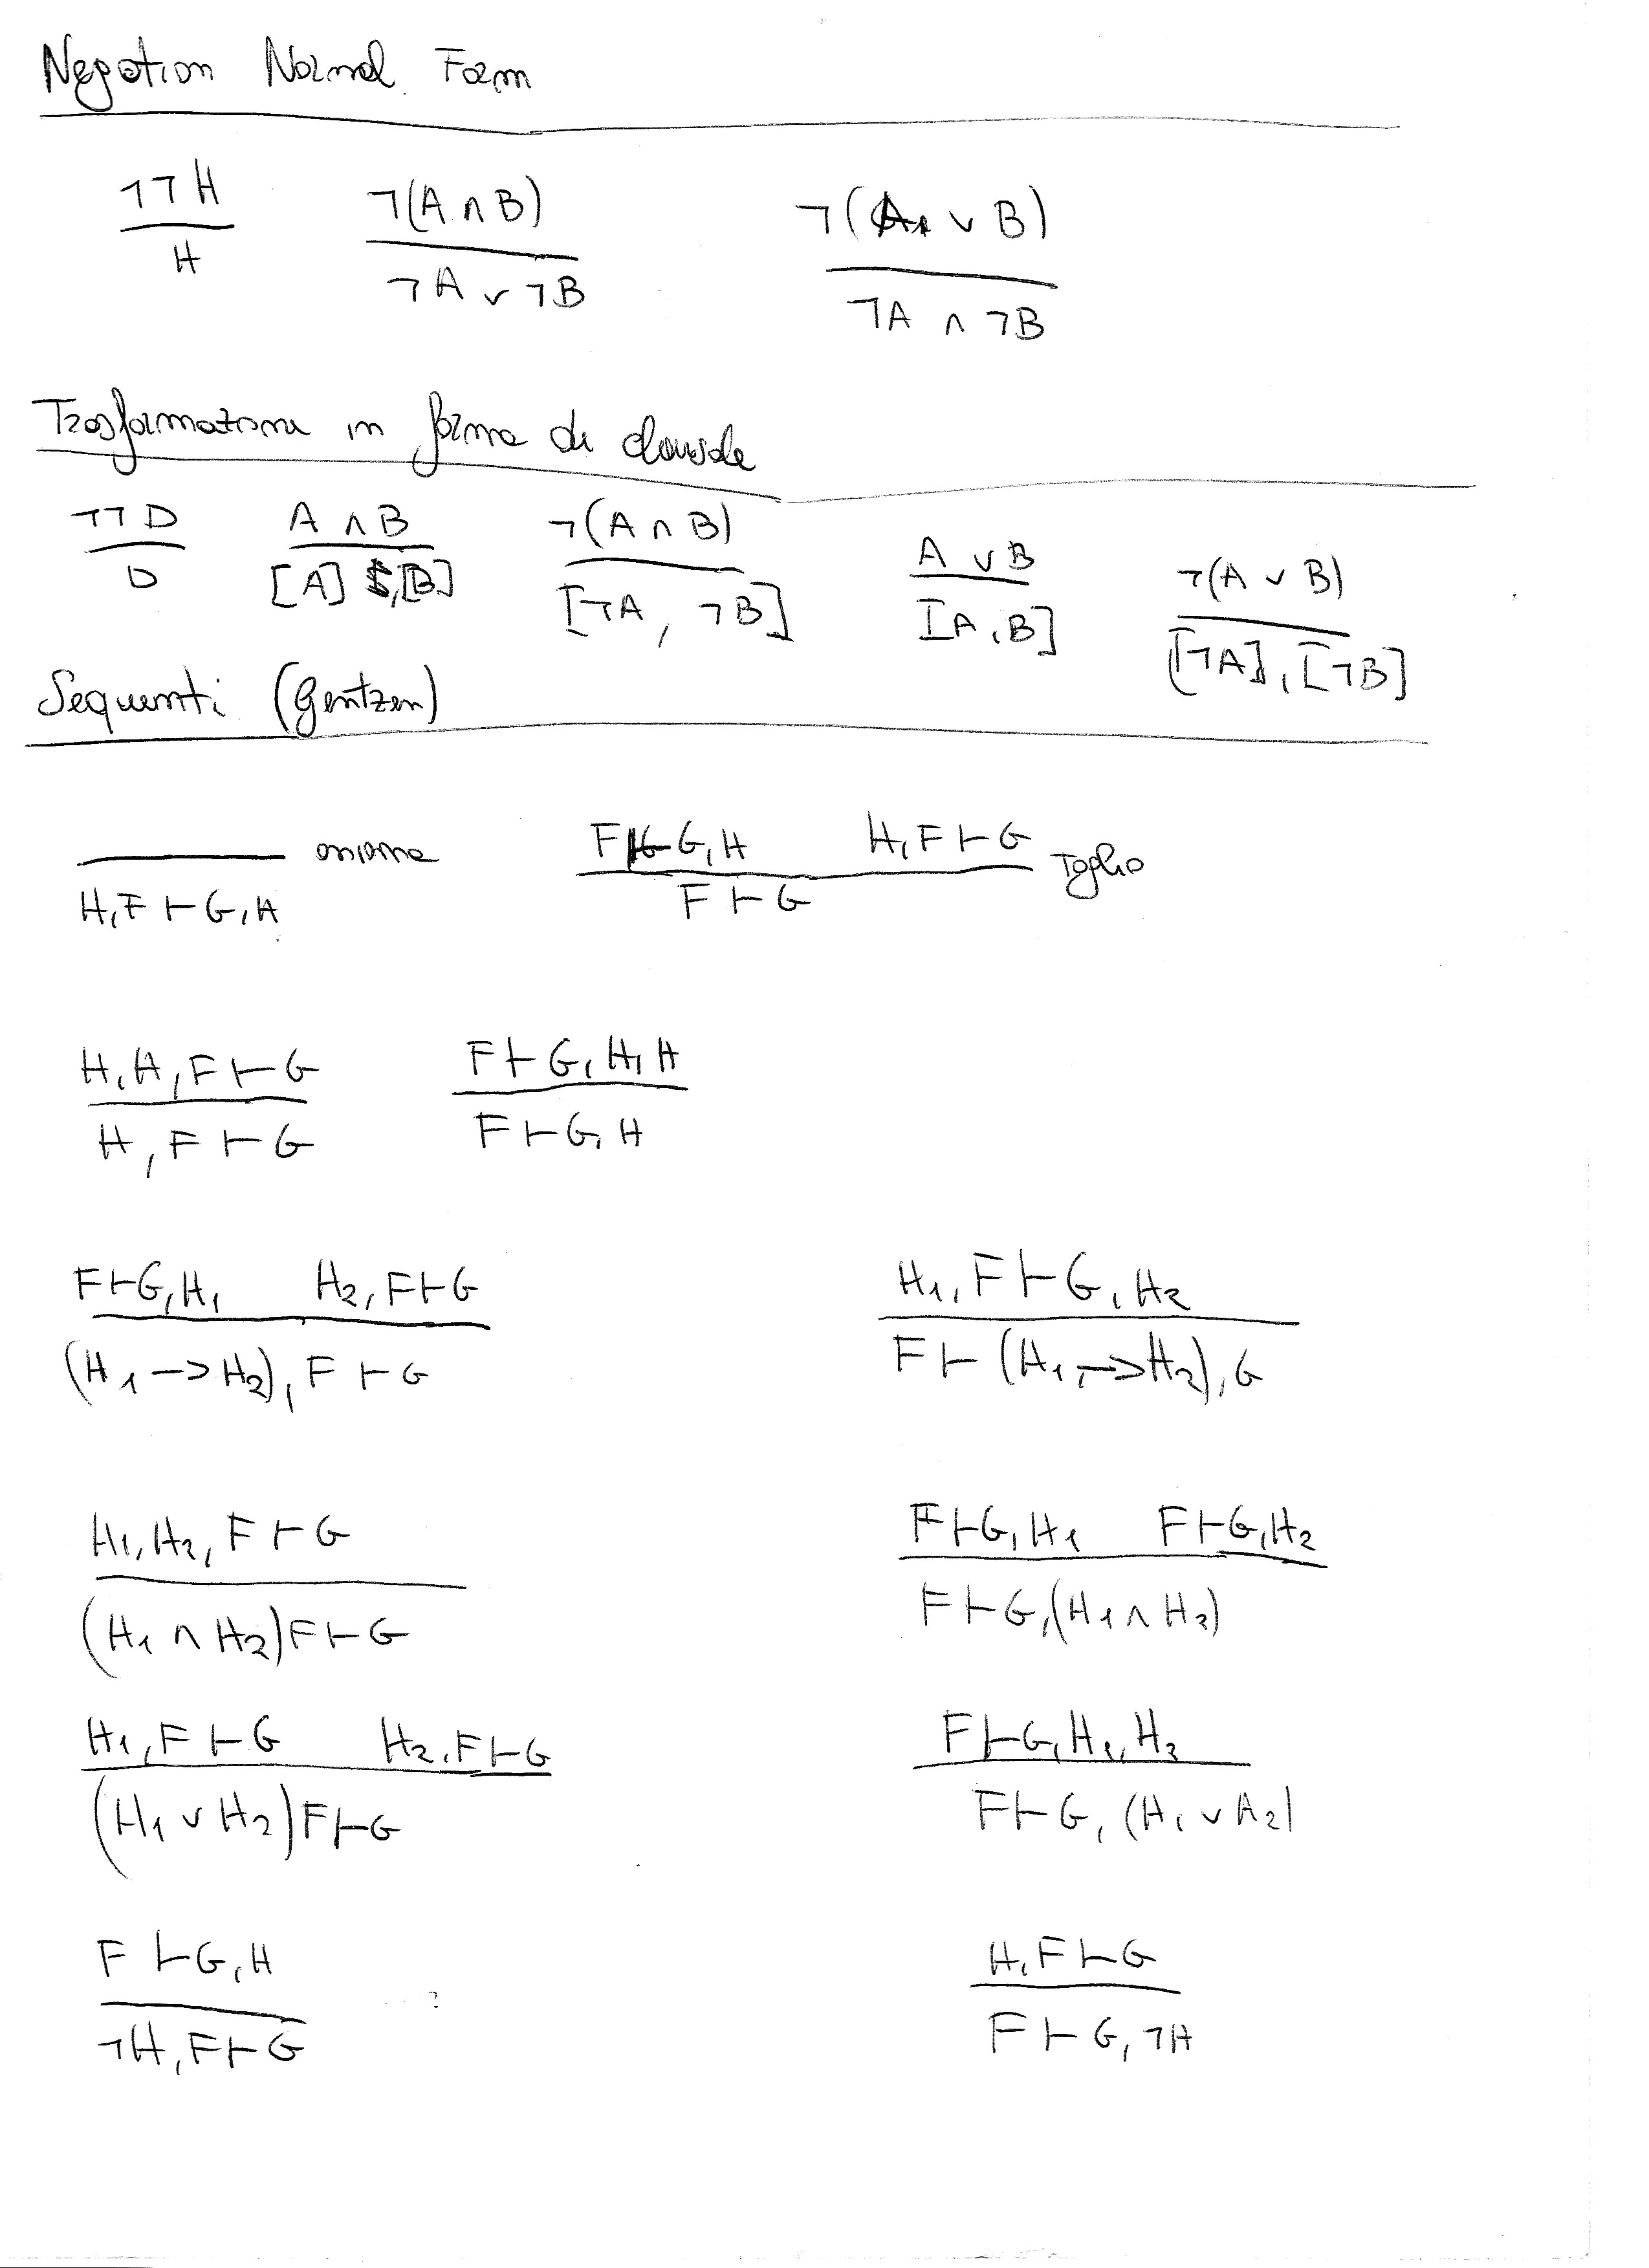 Negation Normal Form
¬¬H ¬(A ∧ B) ¬(A ∨ B)
H ¬A ∨ ¬B ¬A ∧ ¬B
Trasformazione in forma di clausole
¬¬D A ∧ B ¬(A ∧ B) A ∨ B ¬(A ∨ B)
D [A] ,[B] [¬A, ¬B] [A, B] [¬A], [¬B]
Sequenti (Gentzen)
assioma F ⊢ G, H H, F ⊢ G Taglio
H, F ⊢ G, H F ⊢ G
H, H, F ⊢ G F ⊢ G, H, H
H, F ⊢ G F ⊢ G, H
F ⊢ G, H₁ H₂, F ⊢ G H₁, F ⊢ G, H₂
(H₁ → H₂), F ⊢ G F ⊢ (H₁ → H₂), G
H₁, H₂, F ⊢ G F ⊢ G, H₁ F ⊢ G, H₂
(H₁ ∧ H₂) F ⊢ G F ⊢ G, (H₁ ∧ H₂)
H₁, F ⊢ G H₂, F ⊢ G F ⊢ G, H₁, H₂
(H₁ ∨ H₂) F ⊢ G F ⊢ G, (H₁ ∨ H₂)
F ⊢ G, H H, F ⊢ G
¬H, F ⊢ G F ⊢ G, ¬H